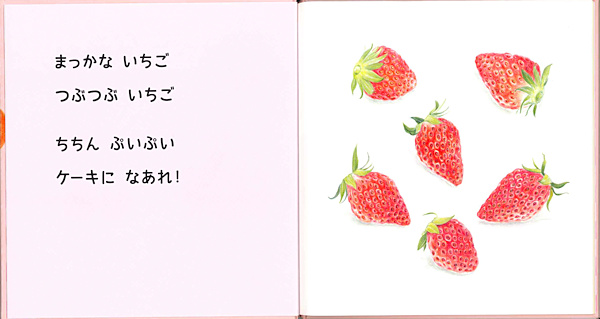 まっかな いちご
つぶつぶ いちご
ちちん ぷいぷい
ケーキに なあれ!